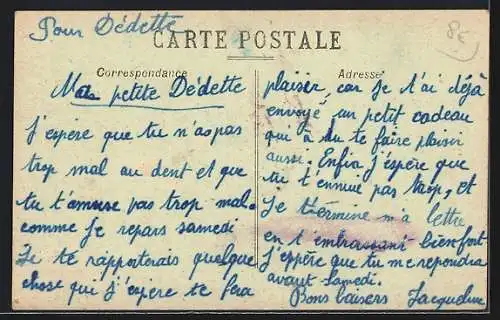 Pour Dédette
8€
CARTE POSTALE
Correspondance
Ma petite Dédette
j'espère que tu n'as pas
trop mal au dent et que
tu t'amuse pas trop mal.
comme je repars samedi
Je te rapporterais quelque
chose qui j'espère te fera
Adresse
plaisir, car je t'ai déjà
envoyé un petit cadeau
qui a du te faire plaisir
aussi. Enfin j'espère que
tu t'ennuie pas trop, et
je termine m'a lettre
en t'embrassant bien fort
j'èspère que tu me repondra
avant samedi.
Bons baisers Jacqueline